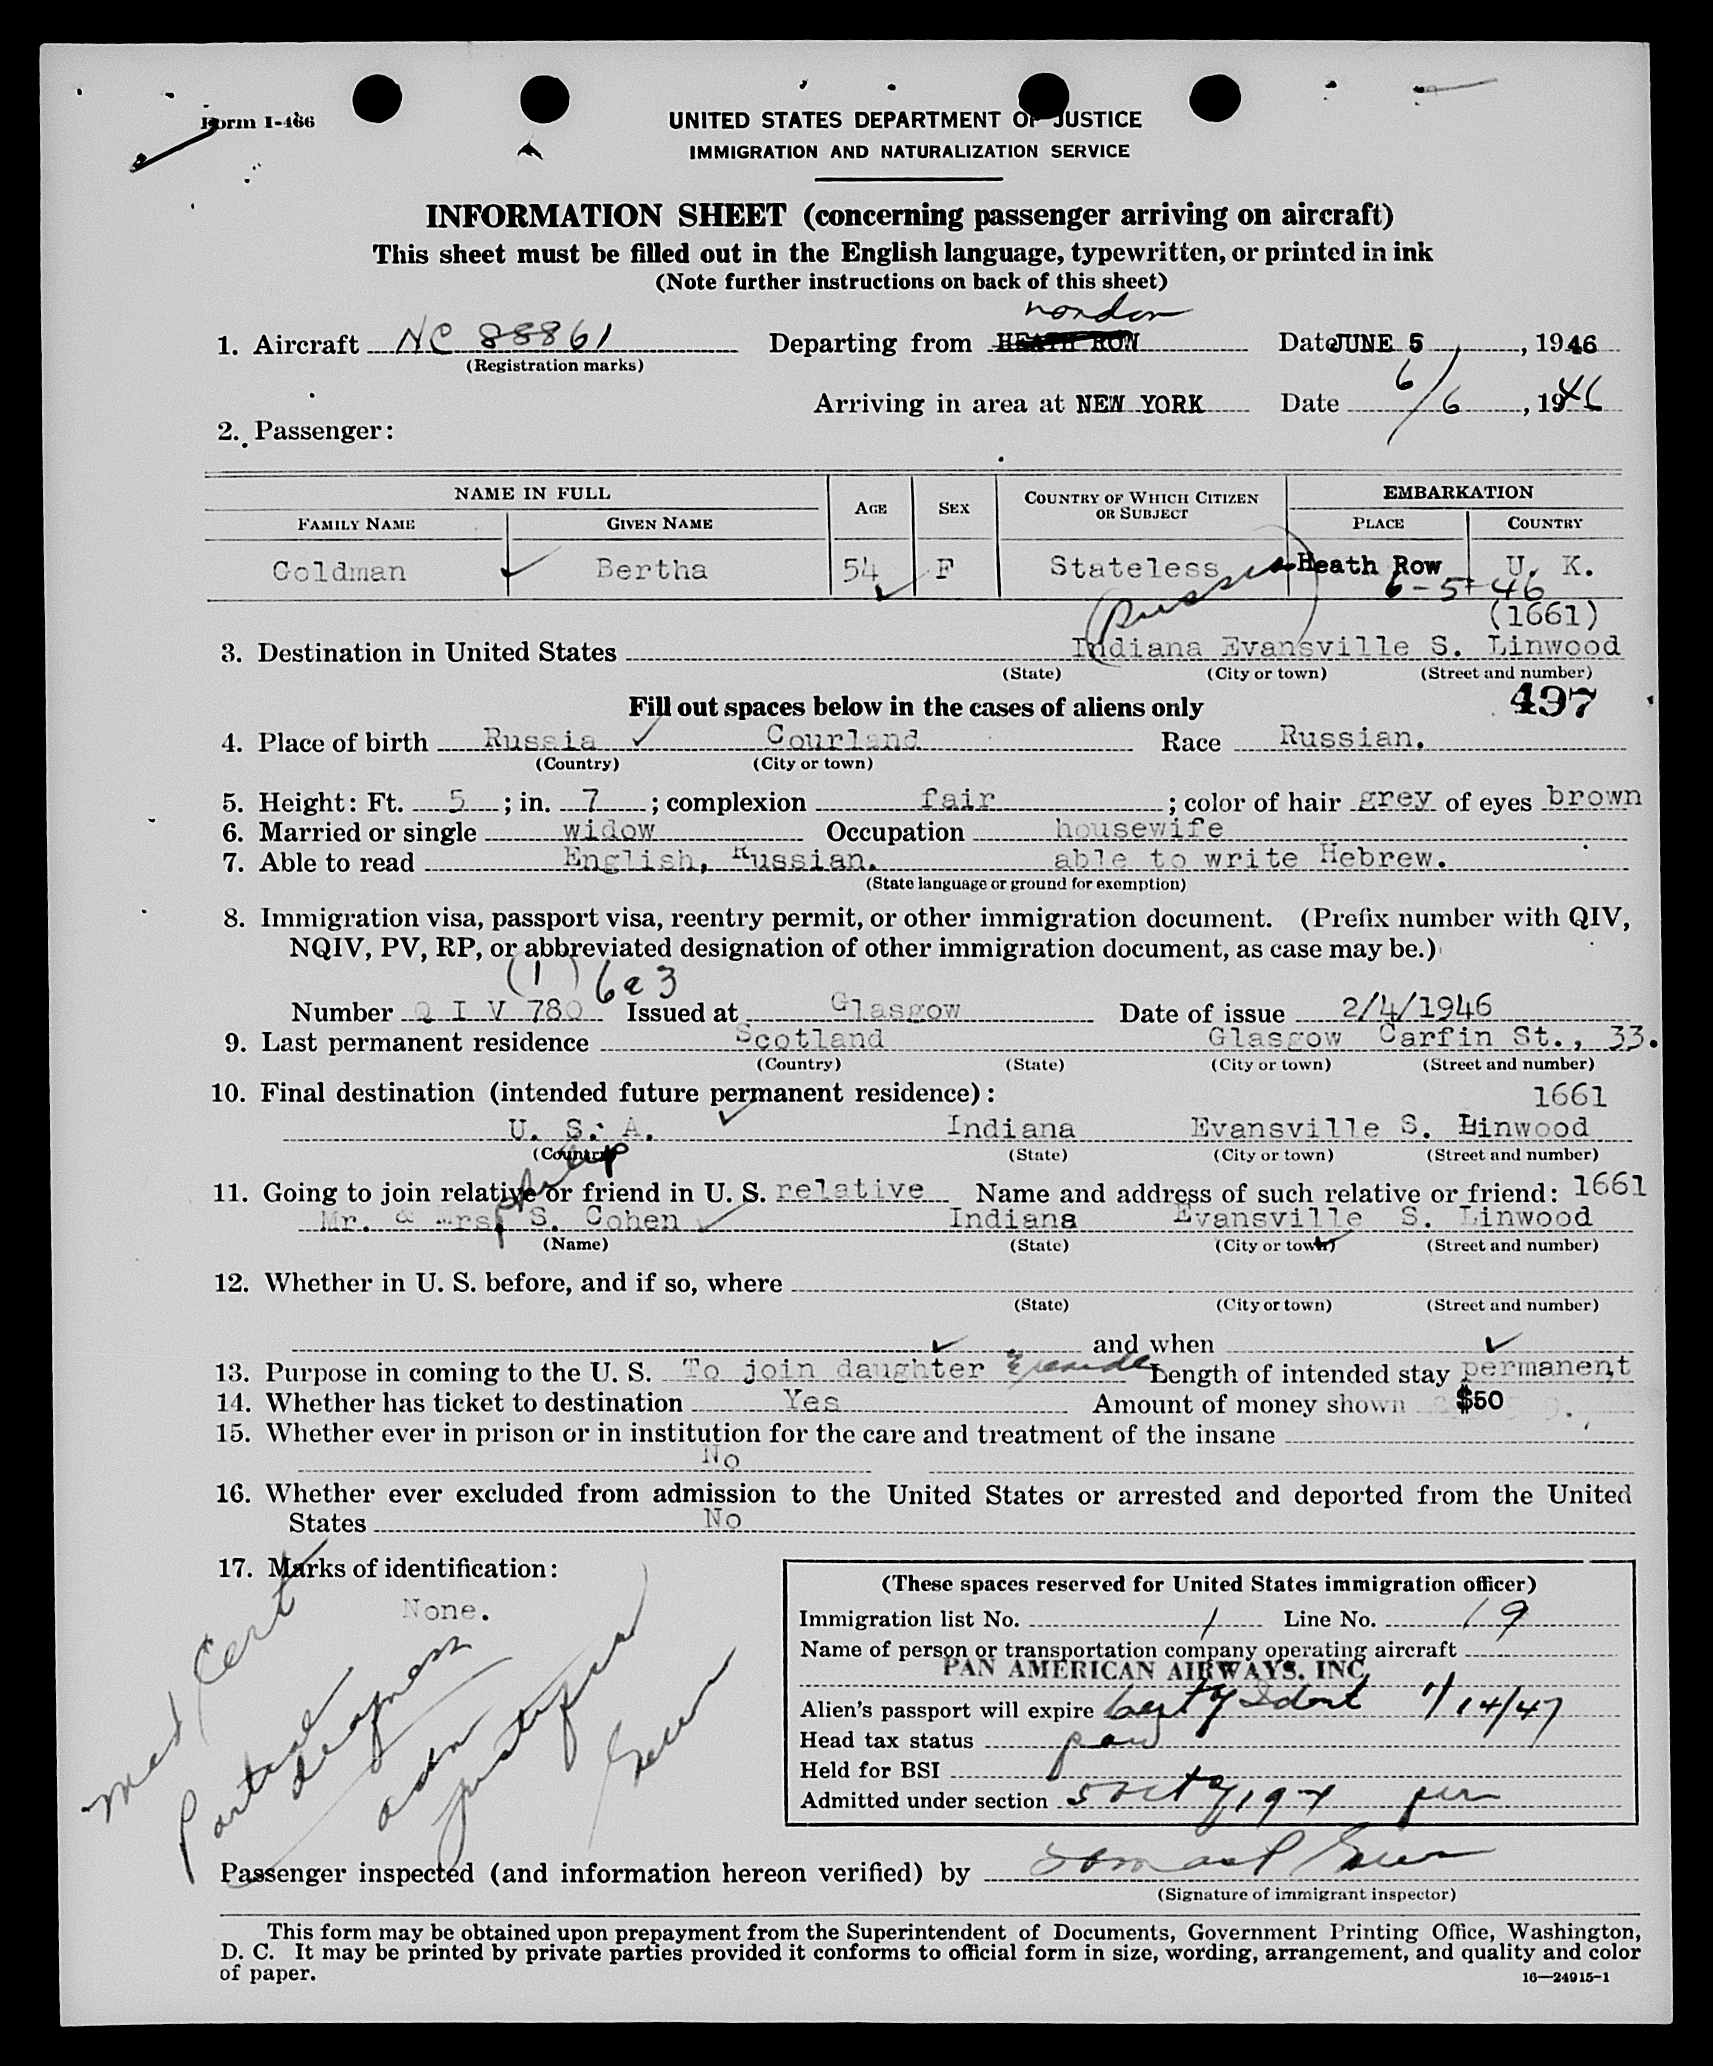 Form I-466
UNITED STATES DEPARTMENT OF JUSTICE
IMMIGRATION AND NATURALIZATION SERVICE
INFORMATION SHEET (concerning passenger arriving on aircraft)
This sheet must be filled out in the English language, typewritten, or printed in ink
(Note further instructions on back of this sheet)
London
1. Aircraft NC 88861 Departing from HEATH ROW Date JUNE 5, 1946
(Registration marks)
Arriving in area at NEW YORK Date 6/6, 1946
2. Passenger:
NAME IN FULL AGE SEX COUNTRY OF WHICH CITIZEN OR SUBJECT EMBARKATION
FAMILY NAME GIVEN NAME PLACE COUNTRY
Goldman Bertha 54 F Stateless Heath Row U. K.
(Russia) 6-5-46
(1661)
3. Destination in United States Indiana Evansville S. Linwood
(State) (City or town) (Street and number)
Fill out spaces below in the cases of aliens only 497
4. Place of birth Russia Courland Race Russian.
(Country) (City or town)
5. Height: Ft. 5; in. 7; complexion fair; color of hair grey of eyes brown
6. Married or single widow Occupation housewife
7. Able to read English, Russian. able to write Hebrew.
(State language or ground for exemption)
8. Immigration visa, passport visa, reentry permit, or other immigration document. (Prefix number with QIV,
NQIV, PV, RP, or abbreviated designation of other immigration document, as case may be.)
(1) 6a3
Number Q I V 780 Issued at Glasgow Date of issue 2/4/1946
9. Last permanent residence Scotland Glasgow Carfin St., 33.
(Country) (State) (City or town) (Street and number)
10. Final destination (intended future permanent residence): 1661
U. S. A. Indiana Evansville S. Linwood
(Country) (State) (City or town) (Street and number)
11. Going to join relative or friend in U. S. relative Name and address of such relative or friend: 1661
Mr. & Mrs. S. Cohen Indiana Evansville S. Linwood
(Name) (State) (City or town) (Street and number)
12. Whether in U. S. before, and if so, where
(State) (City or town) (Street and number)
and when
13. Purpose in coming to the U. S. To join daughter Length of intended stay permanent
14. Whether has ticket to destination Yes Amount of money shown $50
15. Whether ever in prison or in institution for the care and treatment of the insane
No
16. Whether ever excluded from admission to the United States or arrested and deported from the United
States No
17. Marks of identification:
None.
Med Cert
Partial
diagnosis
adm
(These spaces reserved for United States immigration officer)
Immigration list No. 1 Line No. 19
Name of person or transportation company operating aircraft
PAN AMERICAN AIRWAYS. INC.
Alien's passport will expire Cert of Ident 1/14/47
Head tax status paid
Held for BSI
Admitted under section 5 act of 1924 per
Passenger inspected (and information hereon verified) by
(Signature of immigrant inspector)
This form may be obtained upon prepayment from the Superintendent of Documents, Government Printing Office, Washington,
D. C. It may be printed by private parties provided it conforms to official form in size, wording, arrangement, and quality and color
of paper.
16—24915-1